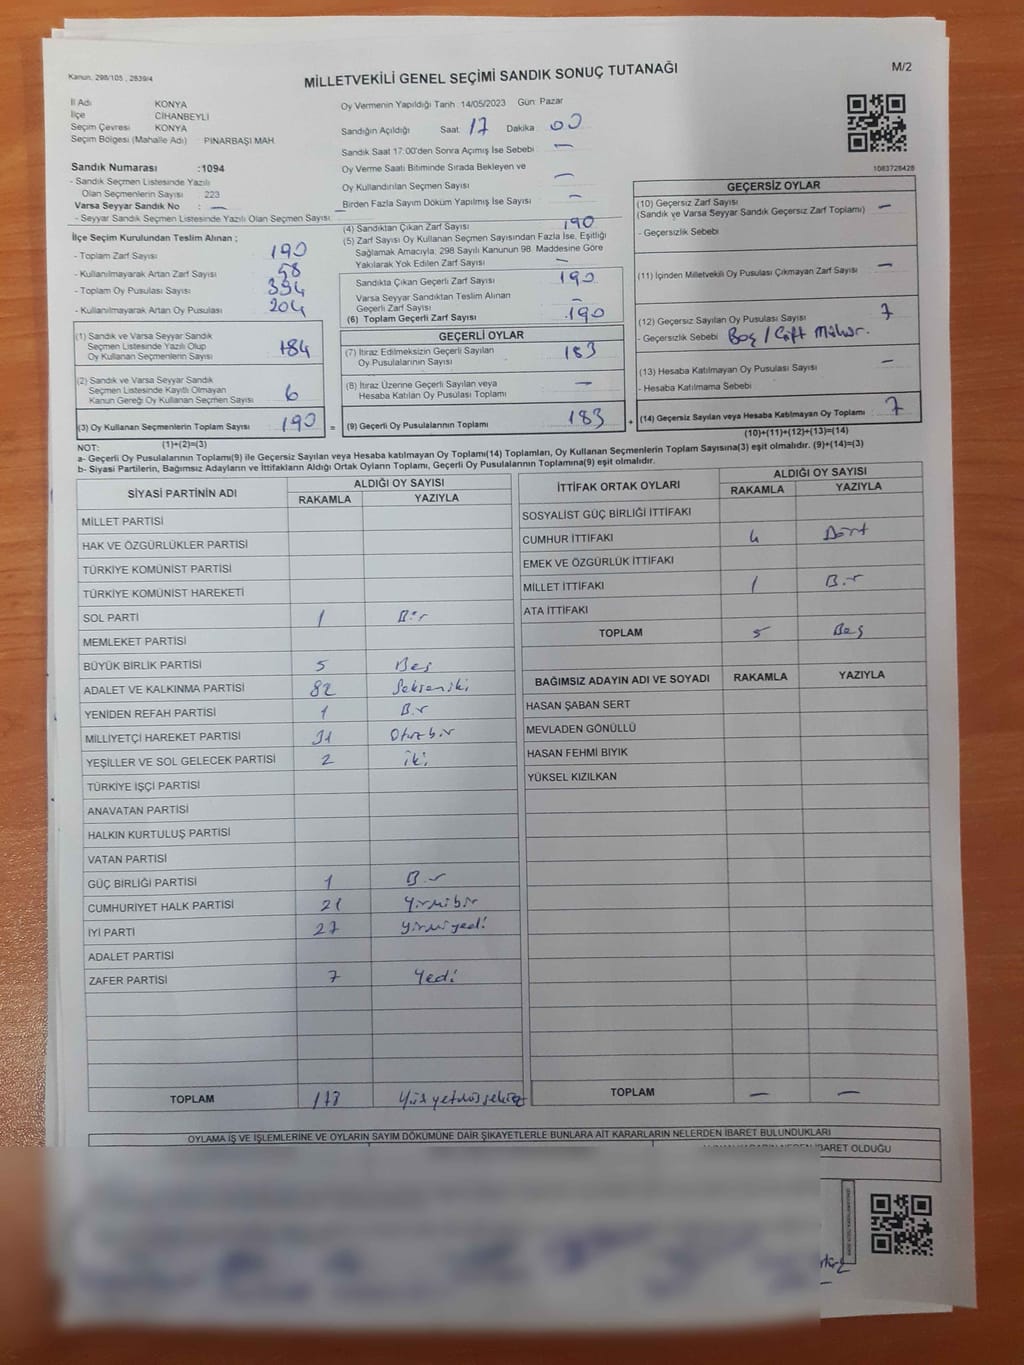 Kanun, 298/105 , 2839/4
MİLLETVEKİLİ GENEL SEÇİMİ SANDIK SONUÇ TUTANAĞI
M/2
İl Adı KONYA
İlçe CİHANBEYLİ
Seçim Çevresi KONYA
Seçim Bölgesi (Mahalle Adı) PINARBAŞI MAH.
Sandık Numarası :1094
- Sandık Seçmen Listesinde Yazılı
Olan Seçmenlerin Sayısı 223
Varsa Seyyar Sandık No : —
- Seyyar Sandık Seçmen Listesinde Yazılı Olan Seçmen Sayısı:
Oy Vermenin Yapıldığı Tarih :14/05/2023 Gün: Pazar
Sandığın Açıldığı Saat 17 Dakika 00
Sandık Saat 17:00'den Sonra Açımış İse Sebebi —
Oy Verme Saati Bitiminde Sırada Bekleyen ve
Oy Kullandırılan Seçmen Sayısı —
Birden Fazla Sayım Döküm Yapılmış İse Sayısı —
1083728428
İlçe Seçim Kurulundan Teslim Alınan ;
- Toplam Zarf Sayısı 190
- Kullanılmayarak Artan Zarf Sayısı
- Toplam Oy Pusulası Sayısı
- Kullanılmayarak Artan Oy Pusulası 204
(1) Sandık ve Varsa Seyyar Sandık
Seçmen Listesinde Yazılı Olup
Oy Kullanan Seçmenlerin Sayısı 184
(2) Sandık ve Varsa Seyyar Sandık
Seçmen Listesinde Kayıtlı Olmayan
Kanun Gereği Oy Kullanan Seçmen Sayısı 6
(3) Oy Kullanan Seçmenlerin Toplam Sayısı 190
(4) Sandıktan Çıkan Zarf Sayısı 190
(5) Zarf Sayısı Oy Kullanan Seçmen Sayısından Fazla İse, Eşitliği
Sağlamak Amacıyla, 298 Sayılı Kanunun 98. Maddesine Göre
Yakılarak Yok Edilen Zarf Sayısı —
Sandıkta Çıkan Geçerli Zarf Sayısı 190
Varsa Seyyar Sandıktan Teslim Alınan
Geçerli Zarf Sayısı —
(6) Toplam Geçerli Zarf Sayısı 190
GEÇERLİ OYLAR
(7) İtiraz Edilmeksizin Geçerli Sayılan
Oy Pusulalarının Sayısı 183
(8) İtiraz Üzerine Geçerli Sayılan veya
Hesaba Katılan Oy Pusulası Toplamı —
= (9) Geçerli Oy Pusulalarının Toplamı 183 +
GEÇERSİZ OYLAR
(10) Geçersiz Zarf Sayısı
(Sandık ve Varsa Seyyar Sandık Geçersiz Zarf Toplamı) —
- Geçersizlik Sebebi
(11) İçinden Milletvekili Oy Pusulası Çıkmayan Zarf Sayısı —
(12) Geçersiz Sayılan Oy Pusulası Sayısı 7
- Geçersizlik Sebebi Boş / Çift Mühür.
(13) Hesaba Katılmayan Oy Pusulası Sayısı —
- Hesaba Katılmama Sebebi
(14) Geçersiz Sayılan veya Hesaba Katılmayan Oy Toplamı 7
NOT: (1)+(2)=(3) (10)+(11)+(12)+(13)=(14)
a- Geçerli Oy Pusulasının Toplamı(9) ile Geçersiz Sayılan veya Hesaba katılmayan Oy Toplamı(14) Toplamları, Oy Kullanan Seçmenlerin Toplam Sayısına(3) eşit olmalıdır. (9)+(14)=(3)
b- Siyasi Partilerin, Bağımsız Adayların ve İttifakların Aldığı Ortak Oyların Toplamı, Geçerli Oy Pusulalarının Toplamına(9) eşit olmalıdır.
SİYASİ PARTİNİN ADI ALDIĞI OY SAYISI
RAKAMLA YAZIYLA
MİLLET PARTİSİ
HAK VE ÖZGÜRLÜKLER PARTİSİ
TÜRKİYE KOMÜNİST PARTİSİ
TÜRKİYE KOMÜNİST HAREKETİ
SOL PARTİ 1 Bir
MEMLEKET PARTİSİ
BÜYÜK BİRLİK PARTİSİ 5 Beş
ADALET VE KALKINMA PARTİSİ 82 Sekseniki
YENİDEN REFAH PARTİSİ 1 Bir
MİLLİYETÇİ HAREKET PARTİSİ 31 Otuzbir
YEŞİLLER VE SOL GELECEK PARTİSİ 2 iki
TÜRKİYE İŞÇİ PARTİSİ
ANAVATAN PARTİSİ
HALKIN KURTULUŞ PARTİSİ
VATAN PARTİSİ
GÜÇ BİRLİĞİ PARTİSİ 1 Bir
CUMHURİYET HALK PARTİSİ 21 Yirmibir
İYİ PARTİ 27 Yirmiyedi
ADALET PARTİSİ
ZAFER PARTİSİ 7 Yedi
TOPLAM 178 Yüzyetmişsekiz
İTTİFAK ORTAK OYLARI ALDIĞI OY SAYISI
RAKAMLA YAZIYLA
SOSYALİST GÜÇ BİRLİĞİ İTTİFAKI
CUMHUR İTTİFAKI 4 Dört
EMEK VE ÖZGÜRLÜK İTTİFAKI
MİLLET İTTİFAKI 1 Bir
ATA İTTİFAKI
TOPLAM 5 Beş
BAĞIMSIZ ADAYIN ADI VE SOYADI RAKAMLA YAZIYLA
HASAN ŞABAN SERT
MEVLADEN GÖNÜLLÜ
HASAN FEHMİ BIYIK
YÜKSEL KIZILKAN
TOPLAM — —
OYLAMA İŞ VE İŞLEMLERİNE VE OYLARIN SAYIM DÖKÜMÜNE DAİR ŞİKAYETLERLE BUNLARA AİT KARARLARIN NELERDEN İBARET BULUNDUKLARI
İBARET OLDUĞU